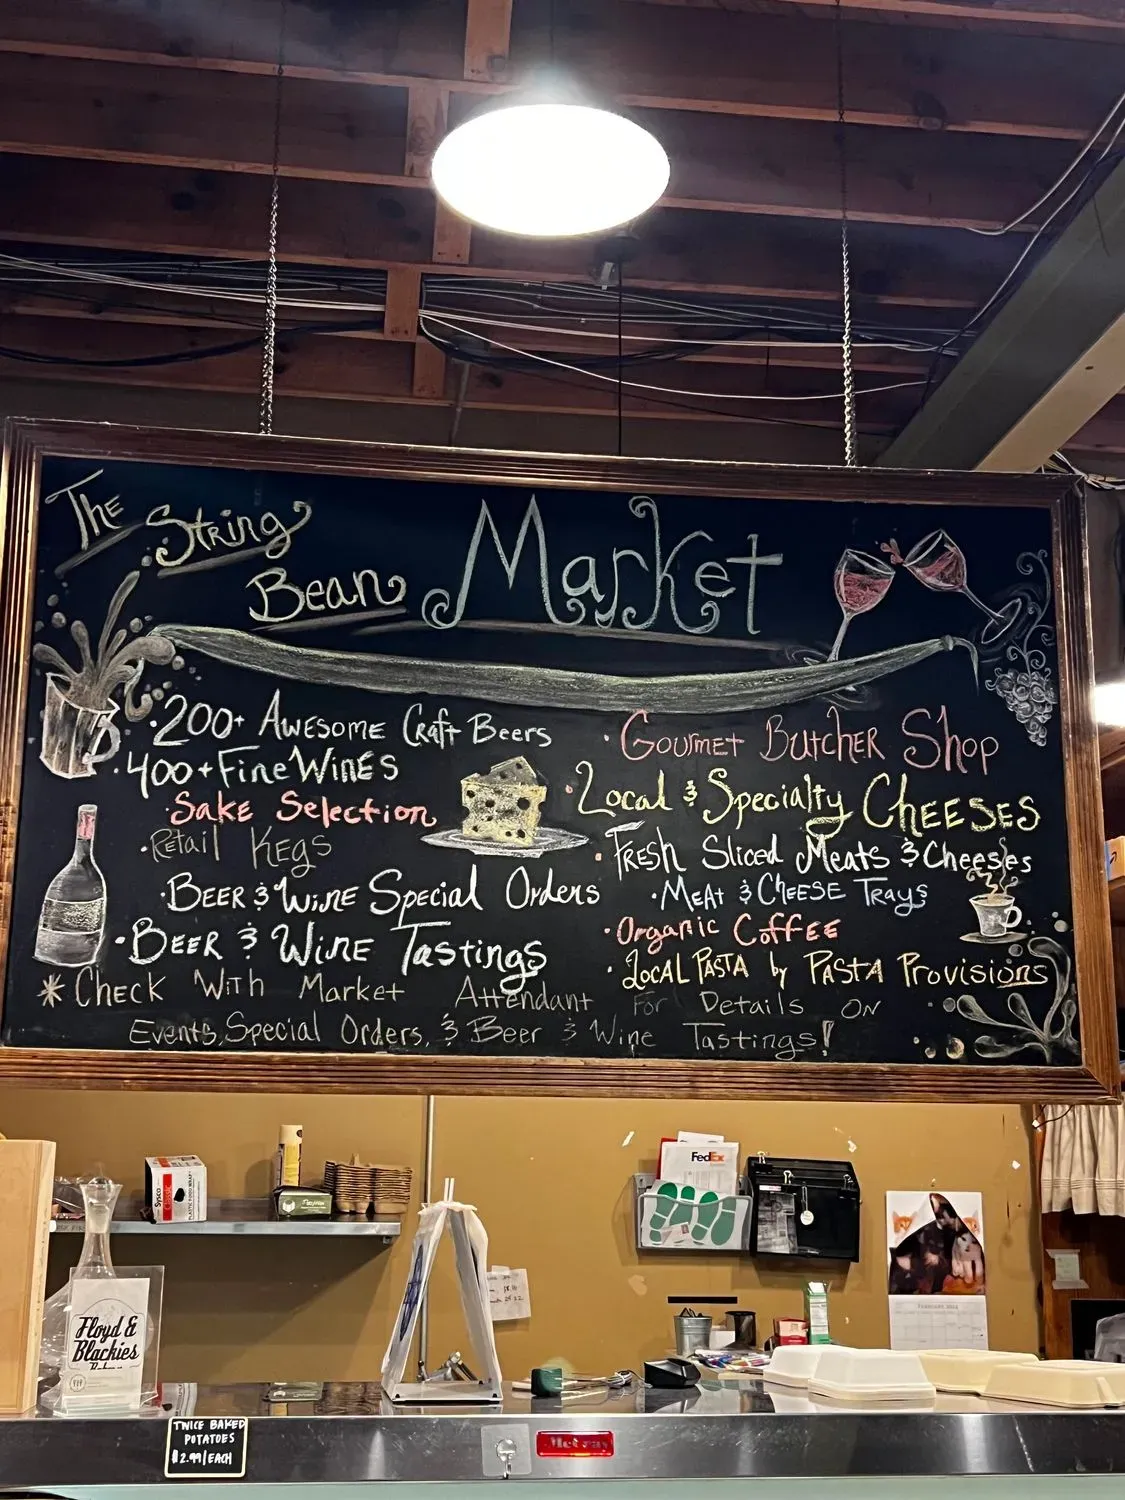 The String
Bean Market
·200+ Awesome Craft Beers
·400+ Fine Wines
·Sake Selection
·Retail Kegs
·Beer & Wine Special Orders
·Beer & Wine Tastings
·Gourmet Butcher Shop
·Local & Specialty Cheeses
·Fresh Sliced Meats & Cheeses
·Meat & Cheese Trays
·Organic Coffee
·Local Pasta by Pasta Provisions
*Check With Market Attendant For Details On
Events, Special Orders, & Beer & Wine Tastings!
Sysco
FedEx
FEBRUARY
Floyd &
Blackies
TWICE BAKED
POTATOES
$2.99/EACH